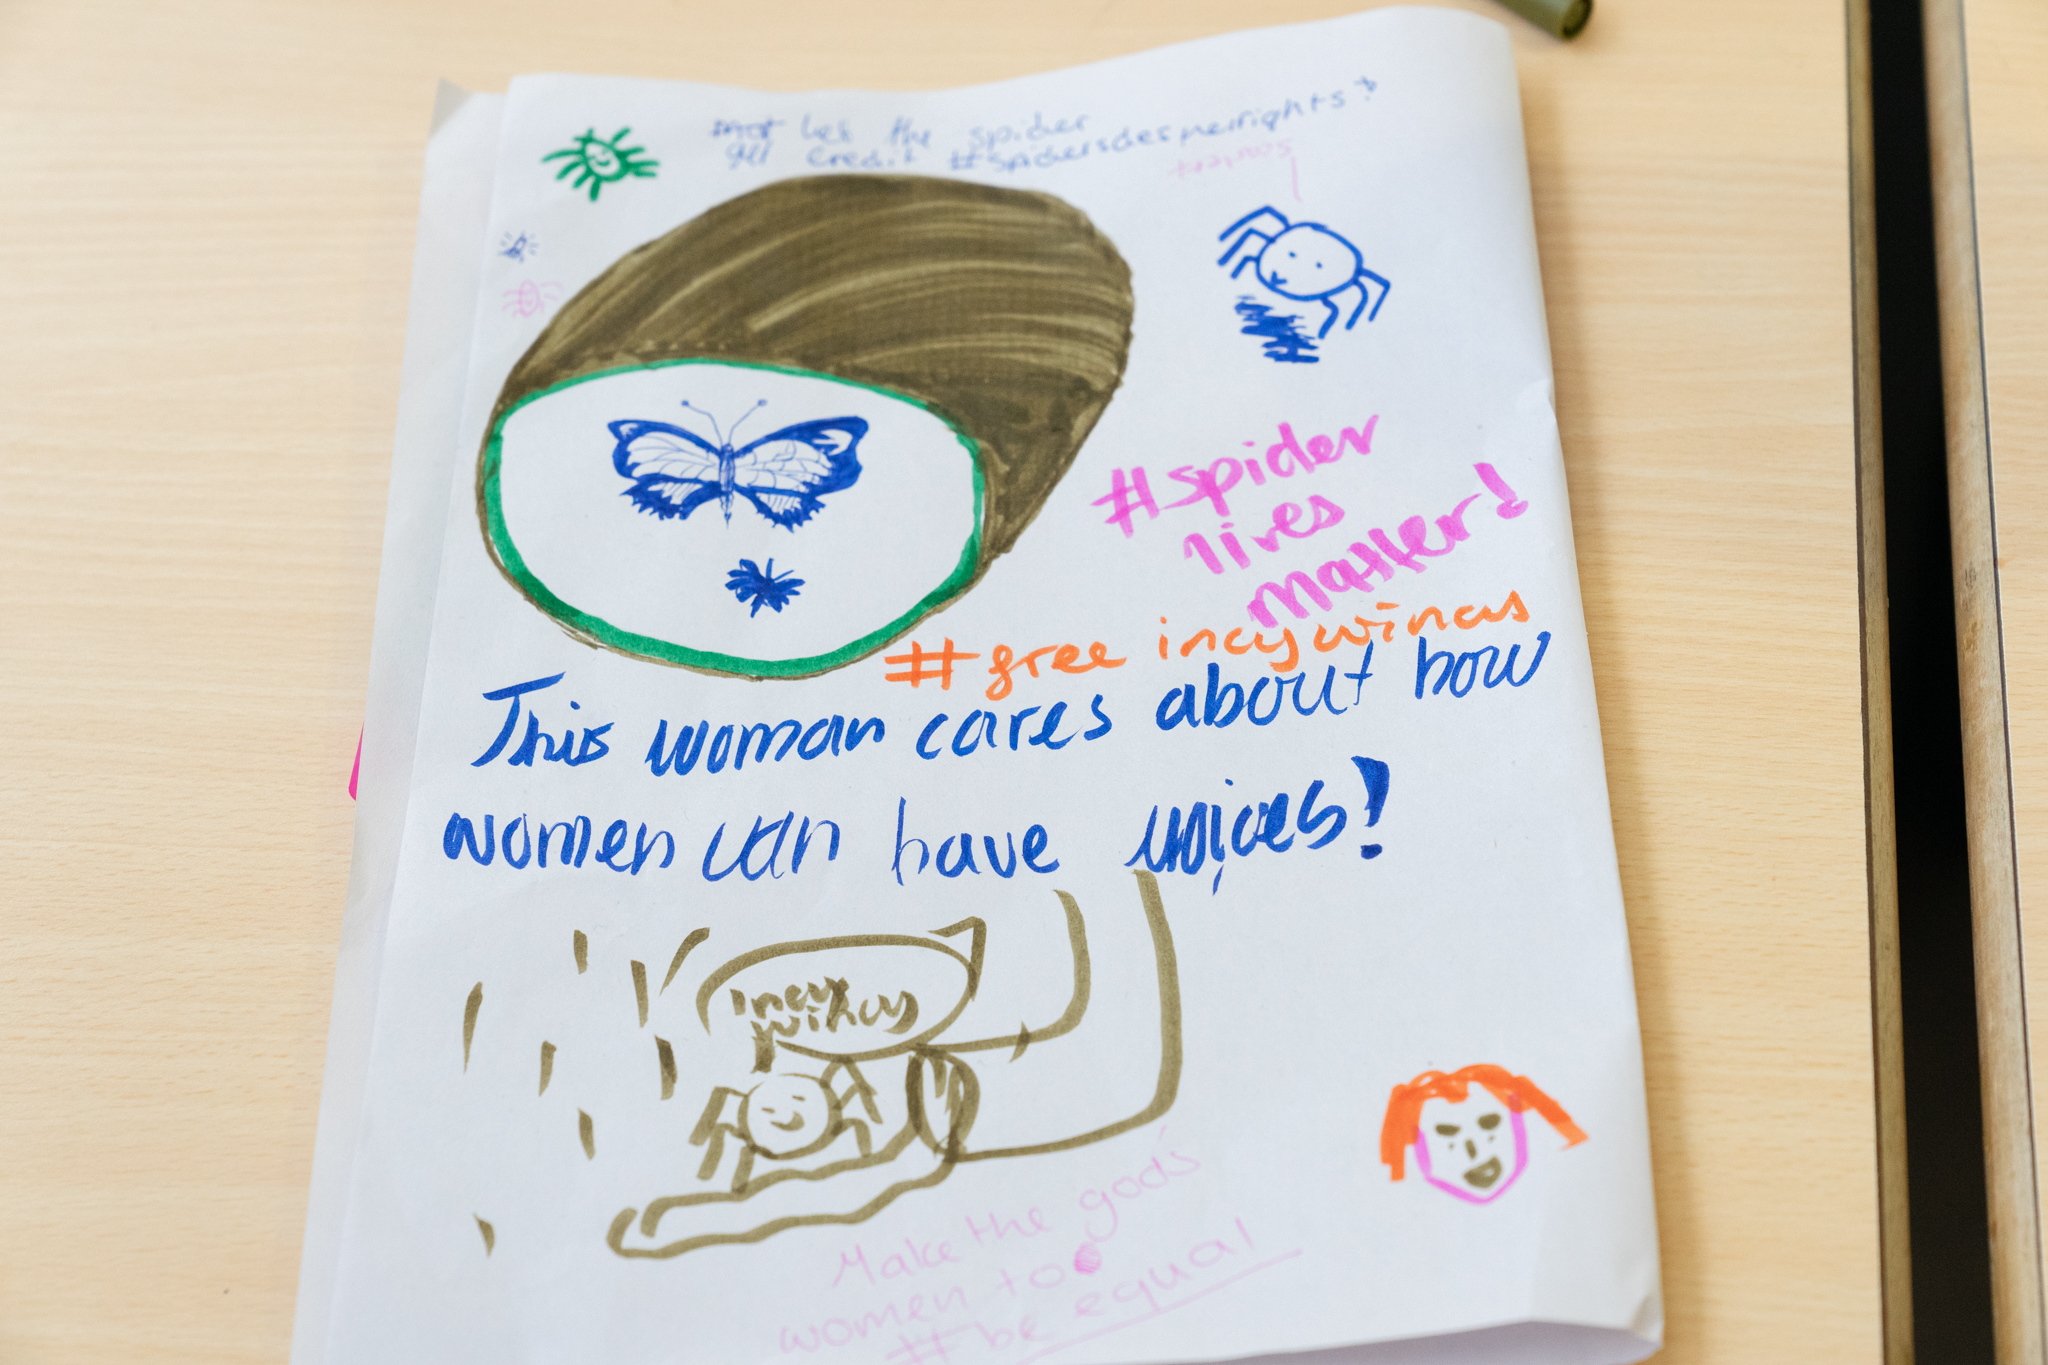 let the spider
get credit #spidersdeserverights?
#spider
lives
matter!
#free incy wincy
This woman cares about how
women can have voices!
incy
wincy
Make the god's
women to
#be equal